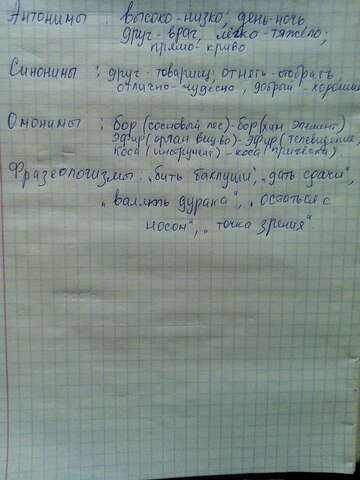 Антонимы : высоко-низко; день-ночь
друг-враг, легко-тяжело;
прямо-криво
Синонимы : друг-товарищ; отнять-отобрать,
отлично-чудесно, добрый-хороший
Омонимы : бор (сосновый лес)-бор (хим элемент)
эфир (орган вещ-во)-эфир (телевидение,
коса (инструмент)-коса (прическа)
Фразеологизмы: „бить баклуши", „дать сдачи",
„валять дурака", „остаться с
носом", „точка зрения".